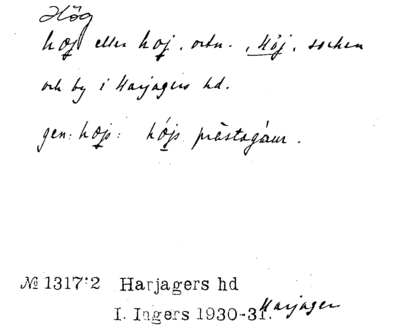 Hög
høj eller hoj. ortn. "Höj", socken
och by i Harjagers hd.
gen: højs: hǿjs prästagáur.
№ 1317:2 Harjagers hd
I. Ingers 1930-31. Harjager